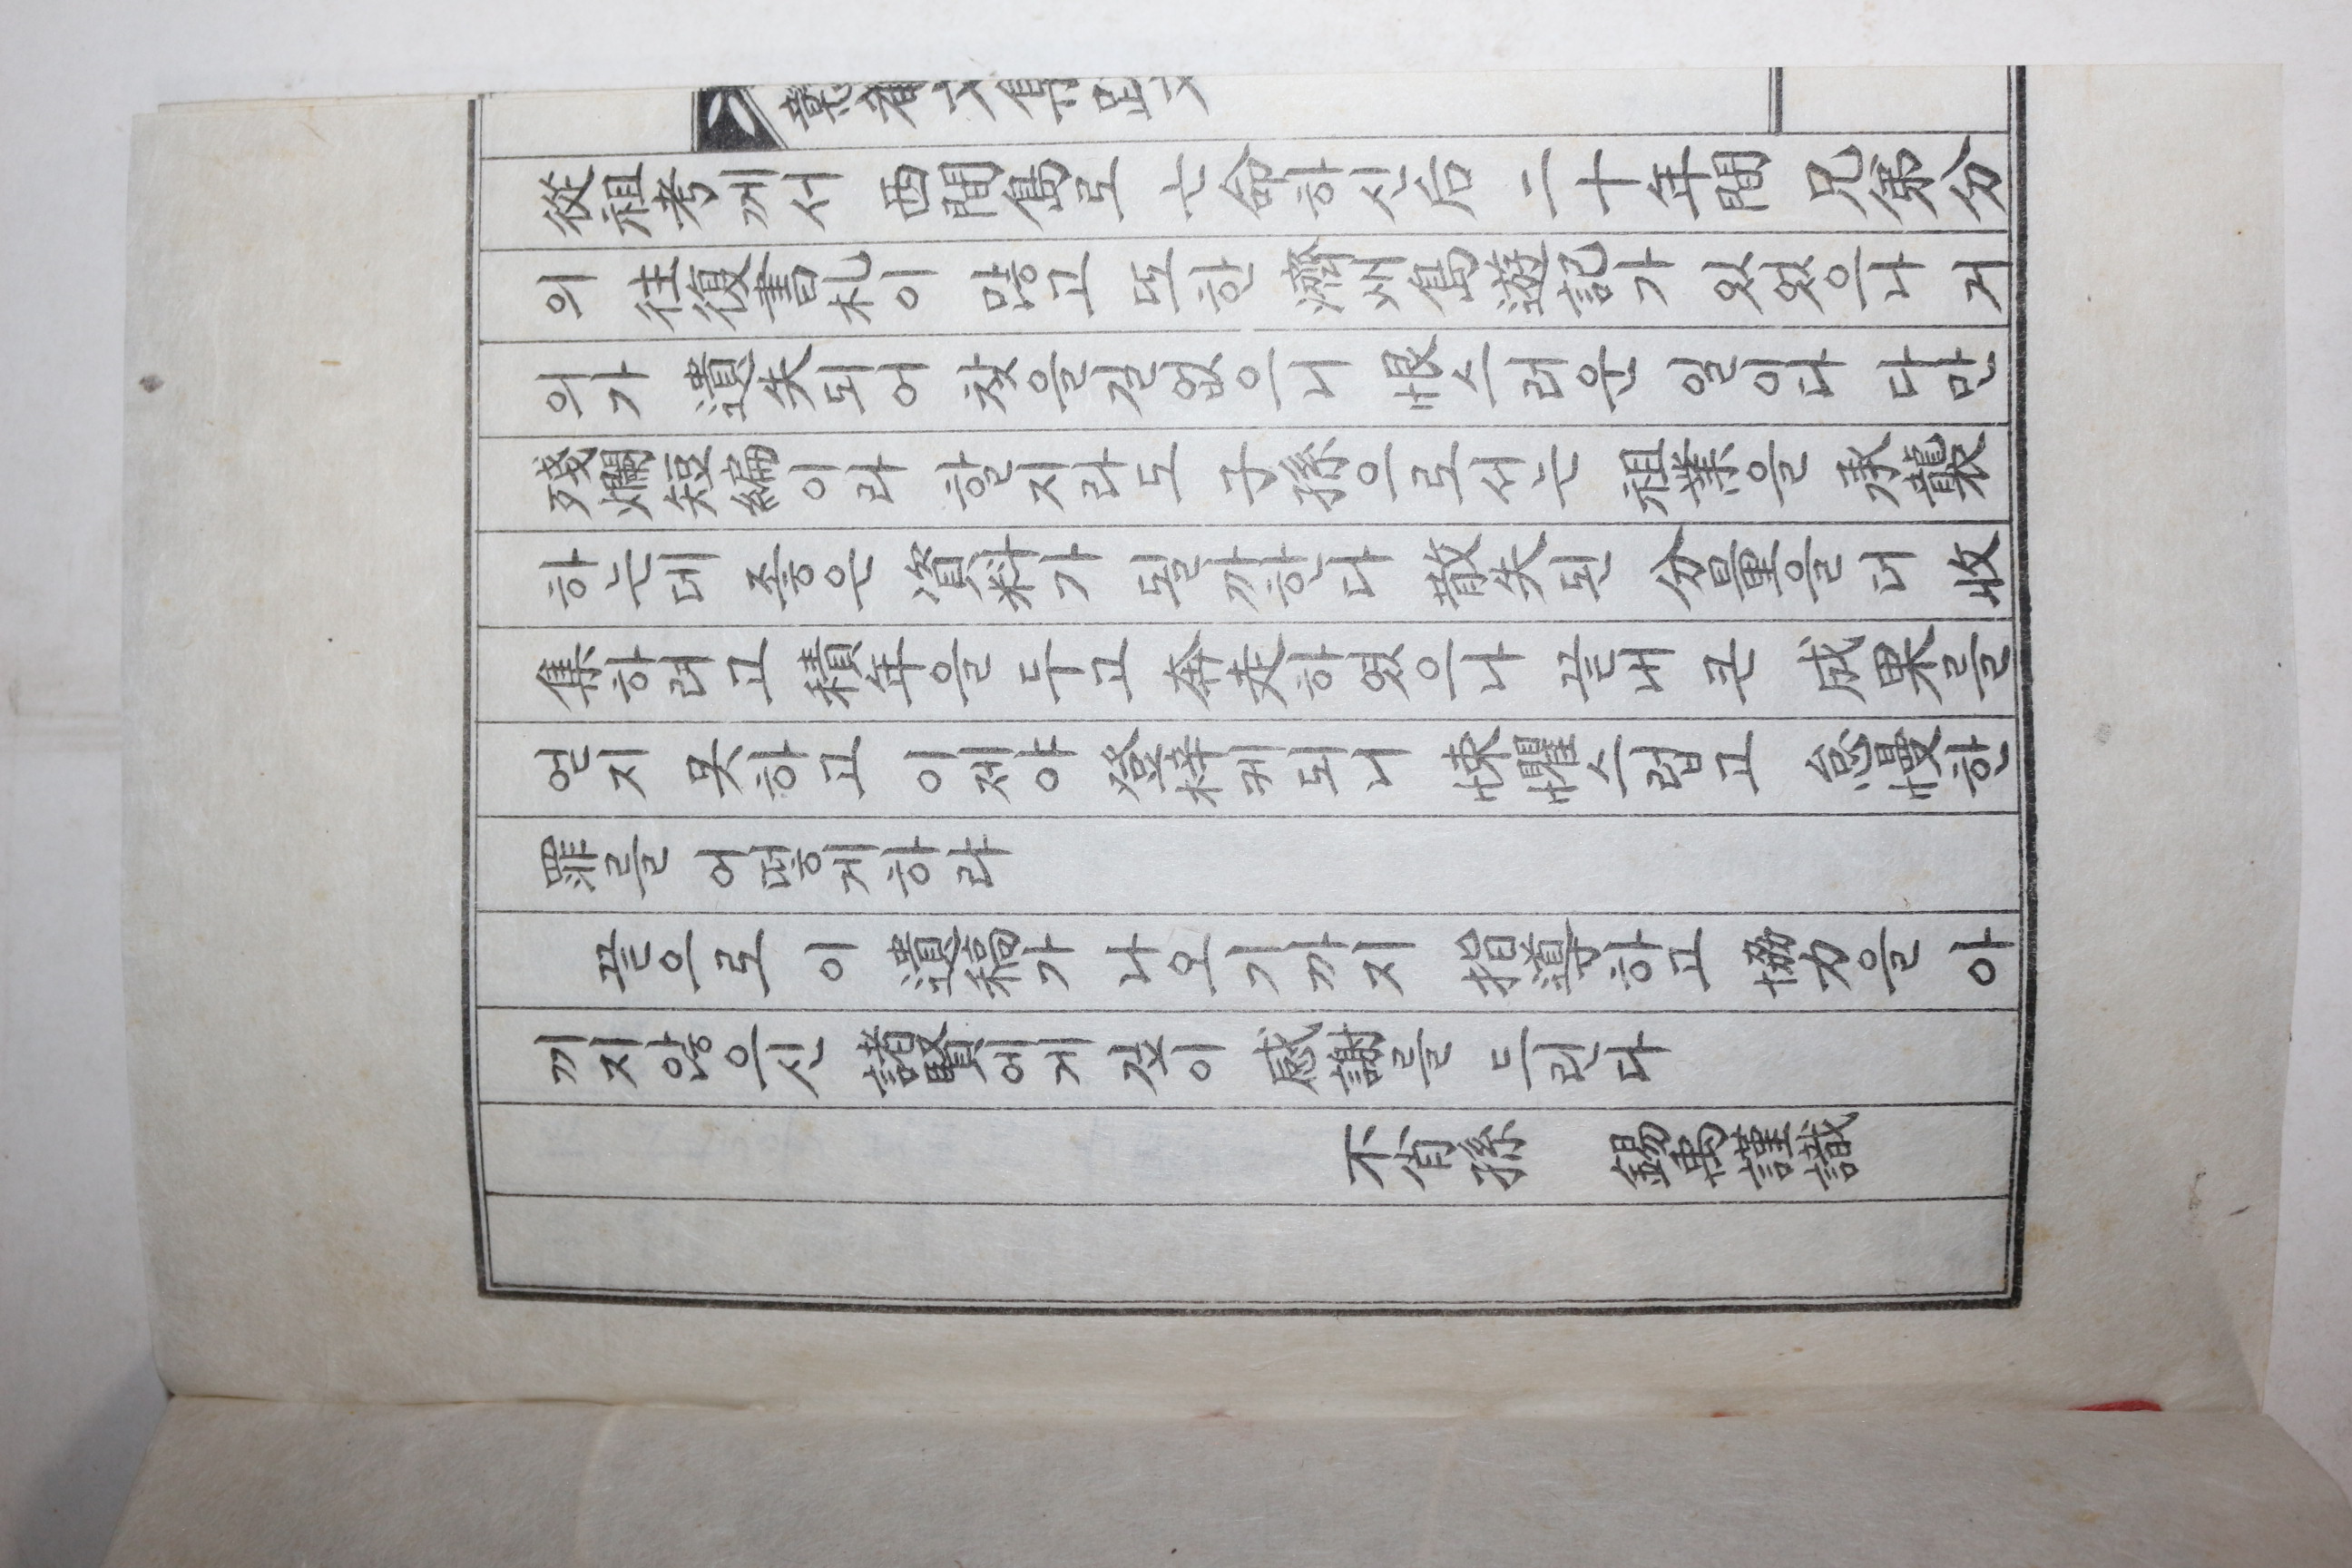 文集跋文
從祖考께서 西間島로 亡命하신后 二十年間 兄弟分
의 往復書札이 많고 또한 濟州島遊記가 있었으나 거
의가 遺失되어 찾을길없으니 恨스러운 일이다 다만
殘爛短編이라 할지라도 子孫으로서는 祖業을 承襲
하는데 좋은 資料가 될까한다 散失된 分量을 더 收
集하려고 積年을 두고 奔走하였으나 끝내 큰 成果를
얻지 못하고 이제야 登梓케되니 悚懼스럽고 怠慢한
罪를 어떻게하랴
끝으로 이 遺稿가 나오기까지 指導하고 協力을 아
끼지않으신 諸賢에게 깊이 感謝를 드린다
不肖孫 錫禹謹識